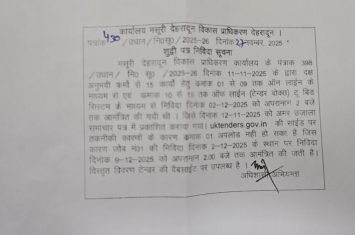 कार्यालय मसूरी देहरादून विकास प्राधिकरण देहरादून ।
पत्रांक 450 /उधान/नि0सू0/2025-26 दिनांक 27 नवम्बर, 2025
शुद्धी पत्र निविदा सूचना
मसूरी देहरादून विकास प्राधिकरण के कार्यालय के पत्रांक 398
/उधान/ नि0 सू0 / 2025-26 दिनांक 11-11-2025 के द्वारा दक्ष
अनुभवी फर्मो से 15 कार्यो हेतु क्रमांक 01 से 09 तक ऑन लाईन के
माध्यम से एवं क्रमांक 10 से 15 तक ऑफ लाईन (टेन्डर वोक्स) टू बिड
सिस्टम के माध्यम से निविदा दिनांक 02-12-2025 को अपरान्ह 2 बजे
तक आमंत्रित की गयी थी । जिसे दिनांक 12-11-2025 को अमर उजाला
समाचार पत्र में प्रकाशित कराया गया। uktenders.gov.in की साईड पर
तकनीकी कारणों के कारण क्रमांक 01 अपलोड नही हो सका है जिस
कारण जॉब नं01 की निविदा दिनांक 2-12-2025 के स्थान पर निविदा
दिनांक 9-12-2025 को अपरान्ह 2.00 बजे तक आमंत्रित की जाती है।
विस्तृत विवरण टेन्डर की वैबसाईट पर उपलब्ध है ।
अधिशासी अभियन्ता